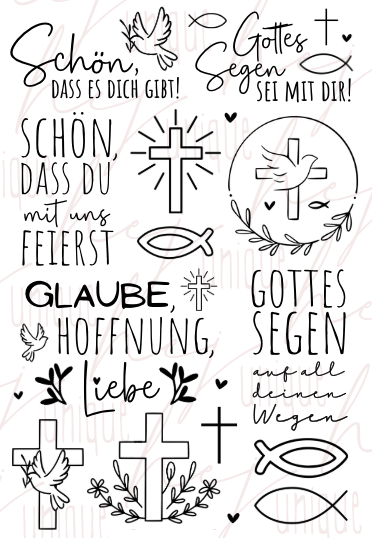 Schön,
DASS ES DICH GIBT!
Gottes
Segen
SEI MIT DIR!
SCHÖN,
DASS DU
mit uns
FEIERST
GLAUBE,
HOFFNUNG,
Liebe
GOTTES
SEGEN
auf all
deinen
Wegen